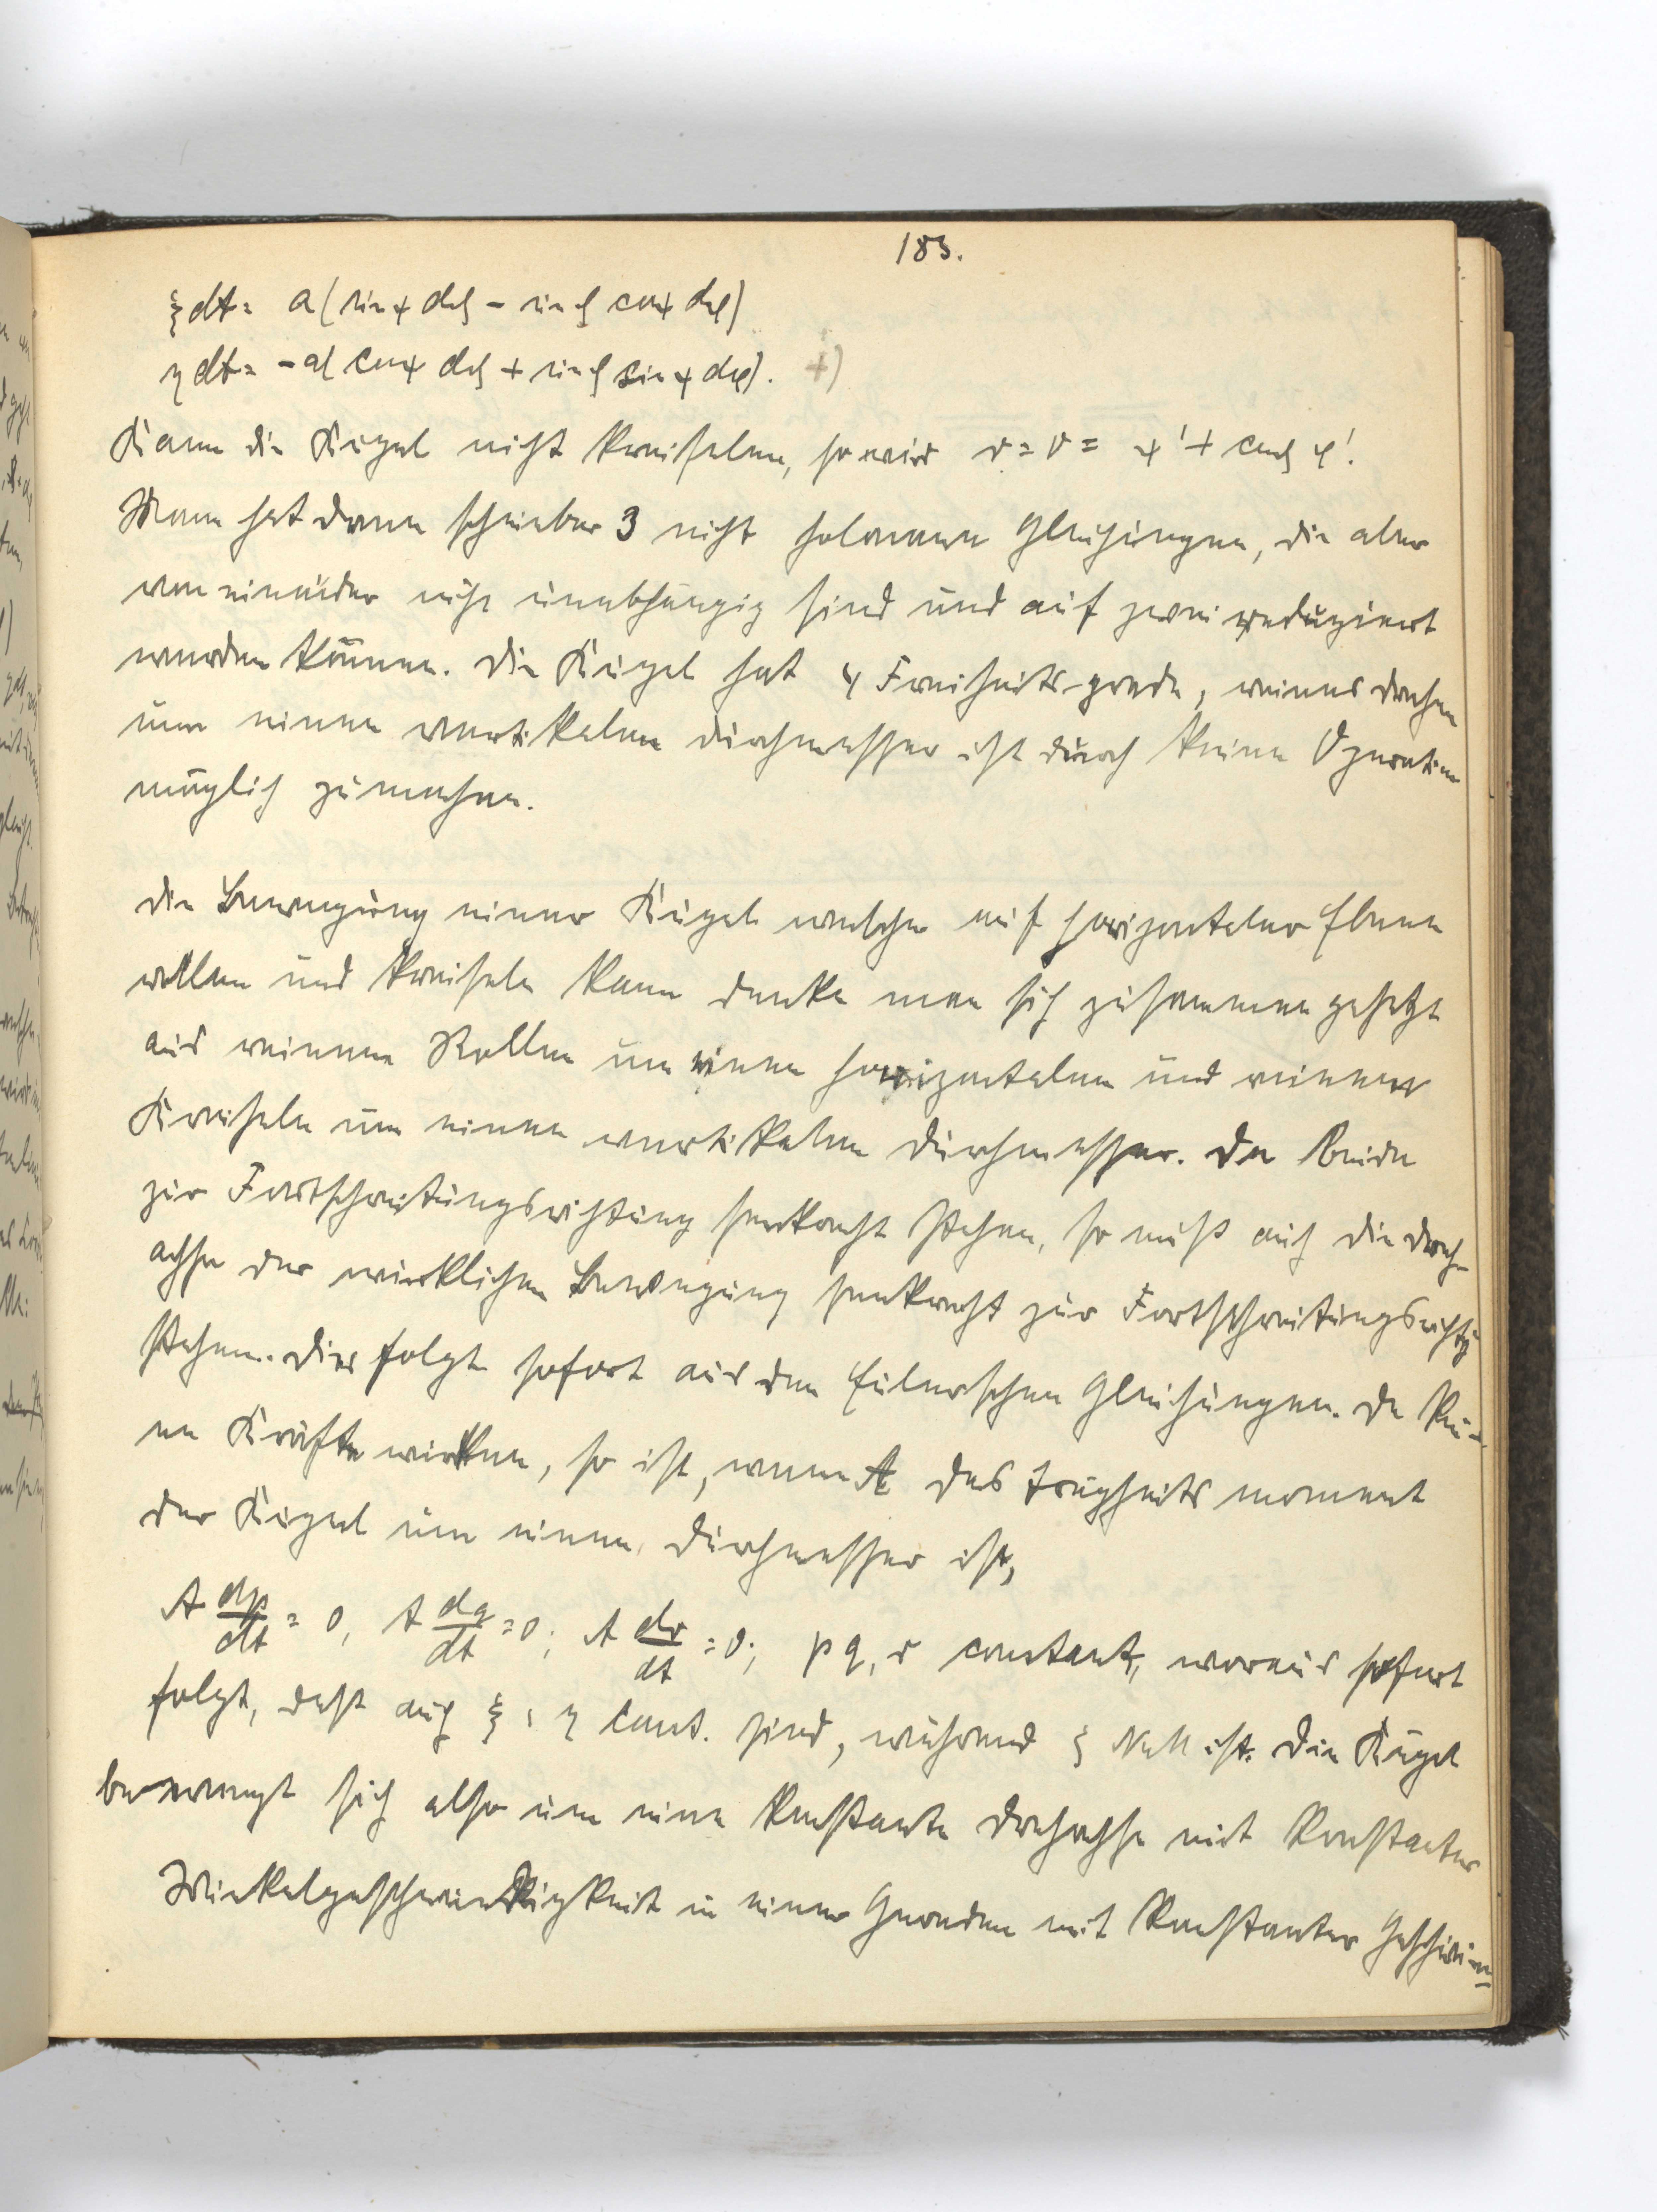 183.
ξdt = a(sinψ dϑ - sinϑ cosψ dφ)
ηdt = -a(cosψ dϑ + sinϑ sinψ dφ). +)
Kann die Kugel nicht kreiseln, so wird r = 0 = ψ' + cosϑ φ'.
Man hat dann scheinbar 3 nicht holonome Gleichungen, die aber
von einander nicht unabhängig sind und auf zwei reduziert
werden können. Die Kugel hat 4 Freiheitsgrade, reines drehen
um einen vertikalen Durchmesser ist durch keine Operation
möglich zu machen.
Die Bewegung einer Kugel welche auf horizontaler Ebene
rollen und kreiseln kann denke man sich zusammen gesetzt
aus reinem Rollen um einen horizontalen und reinem
Kreiseln um einen vertikalen Durchmesser. Da beide
zur Fortschreitungsrichtung senkrecht stehen, so muß auch die Dreh-
achse der wirklichen Bewegung senkrecht zur Fortschreitungsrichtg
stehen. Dies folgt sofort aus den Eulerschen Gleichungen. Da kei-
ne Kräfte wirken, so ist, wenn A das Trägheitsmoment
der Kugel um einen Durchmesser ist,
A dp/dt = 0, A dq/dt = 0; A dr/dt = 0; p q, r constant, woraus sofort
folgt, daß auch ξ, η const. sind, während ζ Null ist. Die Kugel
bewegt sich also um eine konstante Drehachse mit konstanter
Winkelgeschwindigkeit in einer Geraden mit konstanter Geschwin=